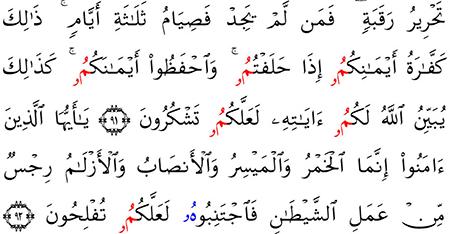 تَحۡرِيرُ رَقَبَةٖۖ فَمَن لَّمۡ يَجِدۡ فَصِيَامُ ثَلَٰثَةِ أَيَّامٖۚ ذَٰلِكَ
كَفَّٰرَةُ أَيۡمَٰنِكُمُۥ إِذَا حَلَفۡتُمُۥۚ وَٱحۡفَظُوٓاْ أَيۡمَٰنَكُمُۥۚ كَذَٰلِكَ
يُبَيِّنُ ٱللَّهُ لَكُمُۥ ءَايَٰتِهِۦ لَعَلَّكُمُۥ تَشۡكُرُونَ ﴿٩١﴾ يَٰٓأَيُّهَا ٱلَّذِينَ
ءَامَنُوٓاْ إِنَّمَا ٱلۡخَمۡرُ وَٱلۡمَيۡسِرُ وَٱلۡأَنصَابُ وَٱلۡأَزۡلَٰمُ رِجۡسٞ
مِّنۡ عَمَلِ ٱلشَّيۡطَٰنِ فَٱجۡتَنِبُوهُۥ لَعَلَّكُمُۥ تُفۡلِحُونَ ﴿٩٢﴾